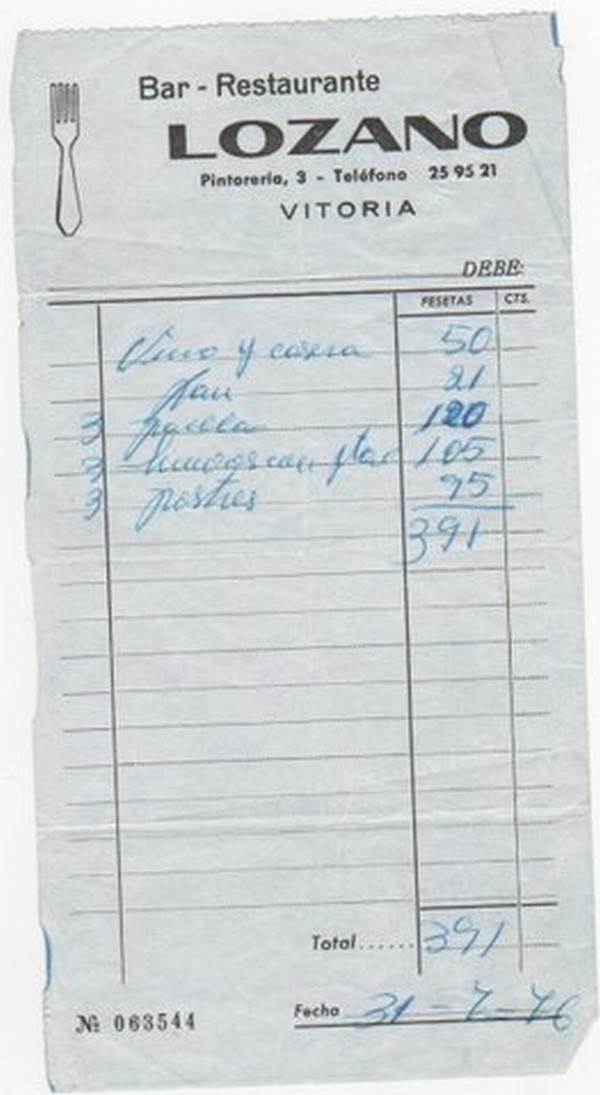 Bar - Restaurante
LOZANO
Pintorería, 3 - Teléfono 25 95 21
VITORIA
DEBE:
PESETAS CTS.
Vino y casera 50
pan 21
3 paella 120
3 105
3 postres 95
391
Total...... 391
Nº 063544 Fecha 31-7-76